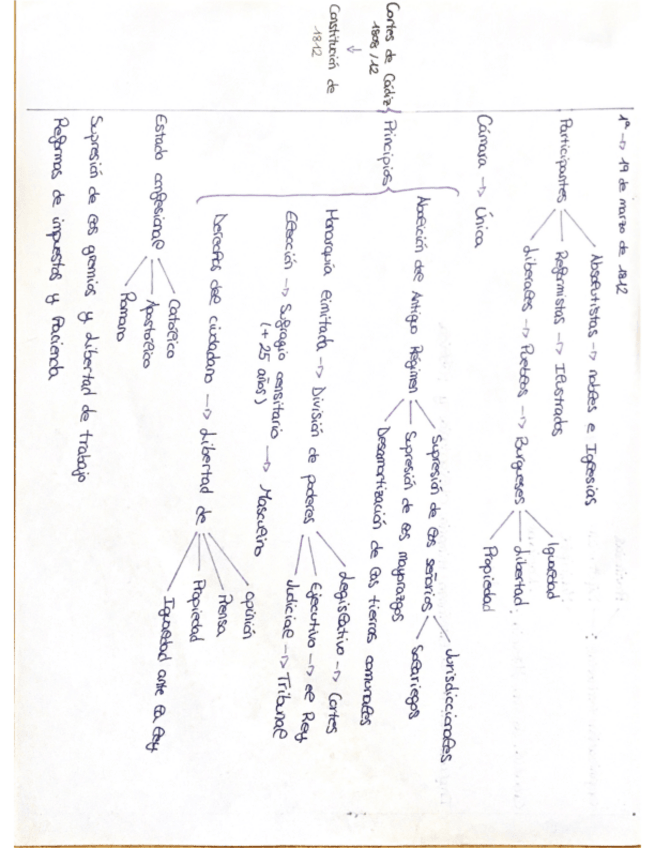 Cortes de Cádiz
1808 / 12
↓
Constitución de
1812
1ª -> 19 de marzo de 1812
Participantes
Absolutistas -> nobles e Iglesias
Reformistas -> Ilustrados
Liberales -> Pueblos -> Burgueses
Igualdad
Libertad
Propiedad
Cámara -> Única
Principios
Abolición del Antiguo Régimen
Supresión de los señoríos
Jurisdiccionales
Solariegos
Supresión de los mayorazgos
Desamortización de las tierras comunales
Monarquía limitada -> División de poderes
Legislativo -> Cortes
Ejecutivo -> el Rey
Judicial -> Tribunal
Elección -> Sufragio censitario -> Masculino
(+ 25 años)
Derechos del ciudadano -> Libertad de
opinión
Prensa
Propiedad
Igualdad ante la ley
Estado confesional
Católico
Apostólico
Romano
Supresión de los gremios y libertad de trabajo
Reformas de impuestos y Hacienda